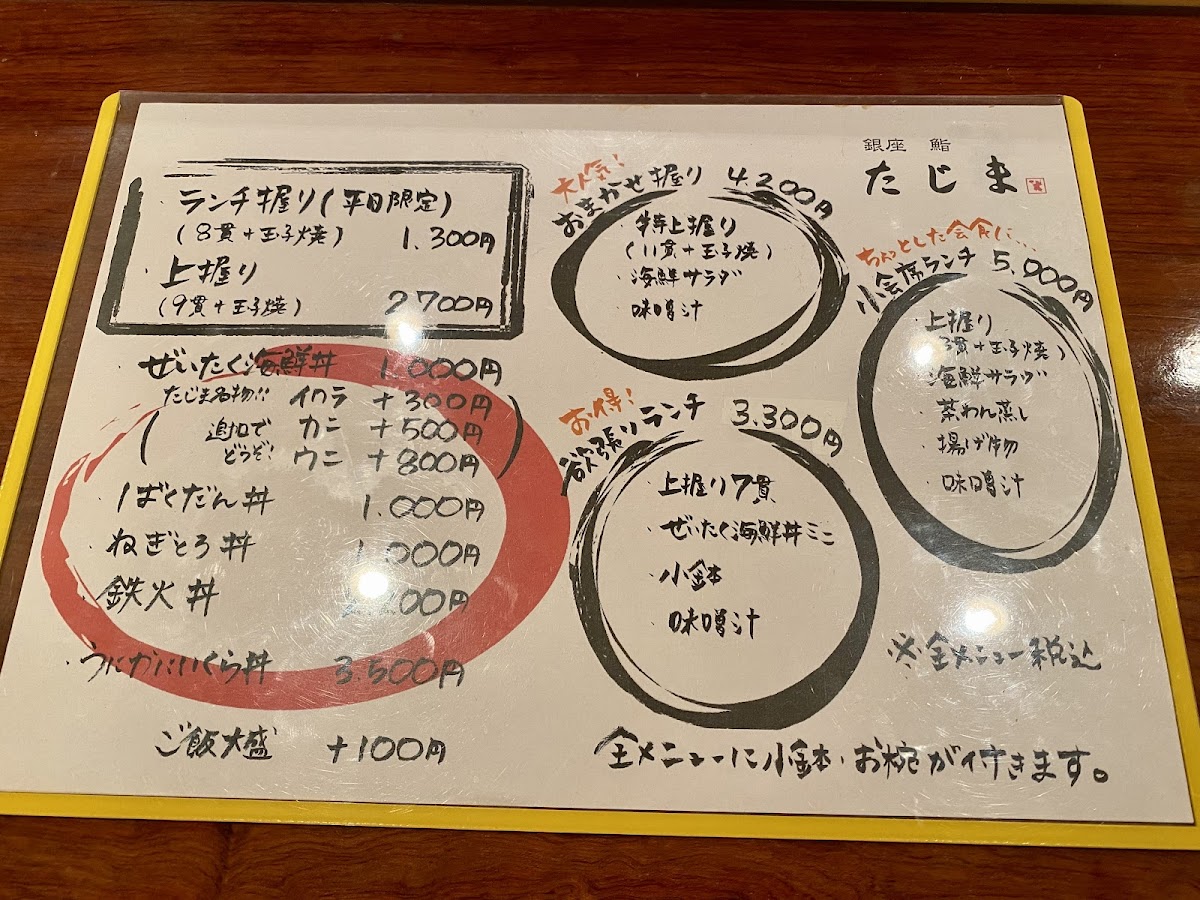 銀座 鮨
たじま
ランチ握り(平日限定)
(8貫+玉子焼) 1.300円
・上握り
(9貫+玉子焼) 2700円
・ぜいたく海鮮丼 1.000円
たじま名物!! イクラ +300円
(追加でどうぞ! カニ +500円
ウニ +800円)
・ばくだん丼 1.000円
・ねぎとろ丼 1.000円
・鉄火丼 00円
・うにかにいくら丼 3.500円
ご飯大盛 +100円
大人気!
おまかせ握り 4.200円
・特上握り
(11貫+玉子焼)
・海鮮サラダ
・味噌汁
お得!
欲張りランチ 3.300円
・上握り7貫
・ぜいたく海鮮丼ミニ
・小鉢
・味噌汁
ちょっとした会食に…
小会席ランチ 5.000円
上握り
貫+玉子焼)
海鮮サラダ
・茶わん蒸し
・揚げ物
・味噌汁
※全メニュー税込
全メニューに小鉢・お椀が付きます。